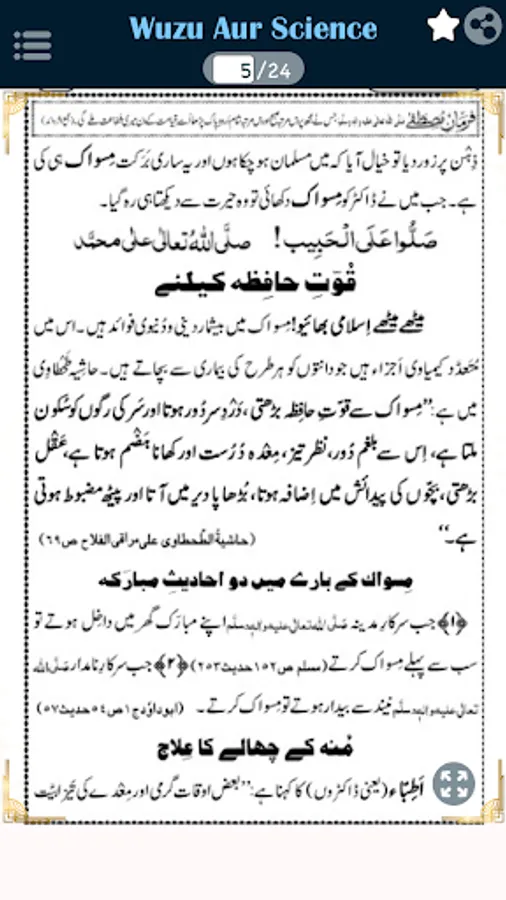 Wuzu Aur Science
5/24
فرمانِ مصطفٰے
ذِہن پر زور دیا تو خیال آیا کہ میں مسلمان ہو چکا ہوں اور یہ ساری بَرَکت مِسواک ہی کی
ہے۔ جب میں نے ڈاکٹر کو مِسواک دکھائی تو وہ حیرت سے دیکھتا ہی رہ گیا۔
صَلُّوا عَلَی الْحَبِیب! صلَّی اللّٰہُ تعالٰی علٰی محمَّد
قُوّتِ حافِظہ کیلئے
میٹھے میٹھے اِسلامی بھائیو! مِسواک میں بیشمار دینی و دُنیوی فوائد ہیں۔ اس میں
مُتَعَدَّد کیمیاوی اَجزاء ہیں جو دانتوں کو ہر طرح کی بیماری سے بچاتے ہیں۔ حاشیۂ طَحْطاوی
میں ہے: ”مِسواک سے قوّتِ حافِظہ بڑھتی، دَردِ سر دُور ہوتا اور سَر کی رگوں کو سُکون
ملتا ہے، اِس سے بلغم دُور، نظر تیز، مِعْدہ دُرُست اور کھانا ہَضْم ہوتا ہے، عَقْل
بڑھتی، بچّوں کی پیدائش میں اِضافہ ہوتا، بُڑھاپا دیر میں آتا اور پیٹھ مضبوط ہوتی
ہے۔“ (حاشیۃُ الطَّحطاوی علی مراقی الفلاح ص۶۹)
مِسواک کے بارے میں دو احادیثِ مبارَکہ
﴿۱﴾ جب سرکارِ مدینہ صَلَّی اللہ تعالٰی علیہ واٰلہٖ وسلَّم اپنے مبارَک گھر میں داخِل ہوتے تو
سب سے پہلے مِسواک کرتے (مسلم ص۱۵۲ حدیث ۲۵۳) ﴿۲﴾ جب سرکارِ نامدار صَلَّی اللہ
تعالٰی علیہ واٰلہٖ وسلَّم نیند سے بیدار ہوتے تو مِسواک کرتے۔ (ابوداوٗد ج۱ ص۵۴ حدیث ۵۷)
مُنہ کے چھالے کا عِلاج
اَطِبّاء (یعنی ڈاکٹروں) کا کہنا ہے: ”بعض اوقات گرمی اور مِعْدے کی تیزابیّت